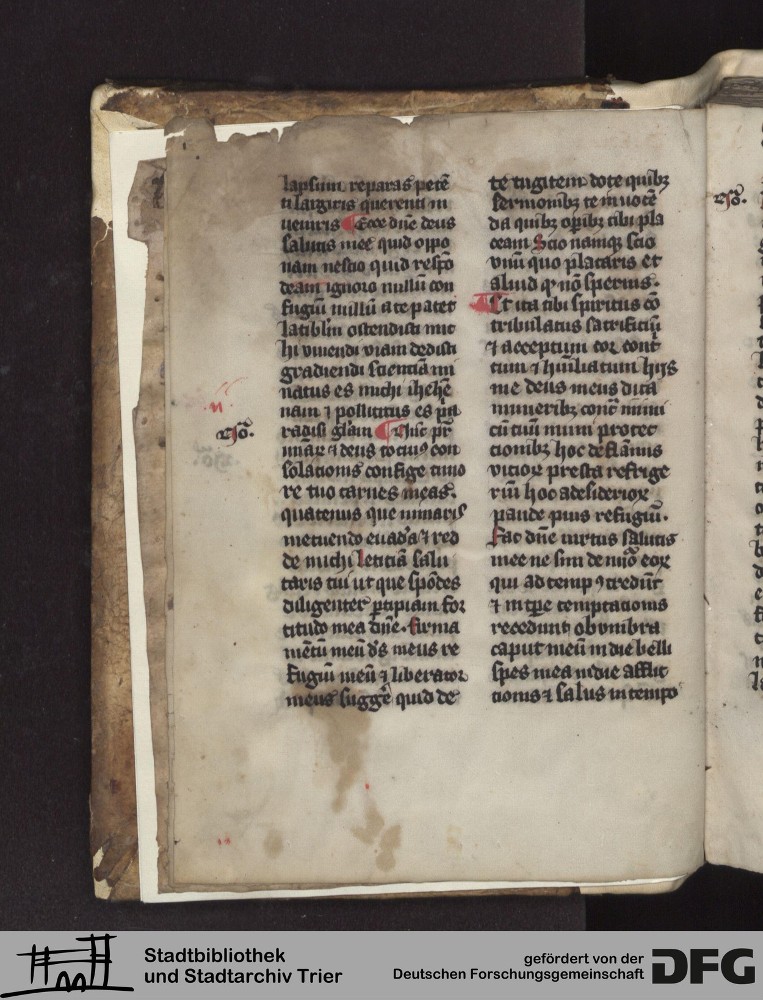 lapsum reparas petē
ti largiris querenti in
ueniris Ecce dn̄e deus
salutis mee quid oppo
nam nescio quid respō
deam ignoro nullū con
fugiū nullū a te patet
latiblm̄ ostendisti mic
hi viuendi viam dedisti
gradiendi scientiā mi
natus es michi ihehē
nam ⁊ pollicitus es pa
radisi glām Nūc pr̄
⁊ deus tociꝰ con
solacionis confige timo
re tuo carnes meas.
quatenus que minaris
metuendo euadā ⁊ red
de michi leticiā salu
taris tui ut que spōdes
diligenter ꝑcipiam for
titudo mea dn̄e. firma
mētū meū ds̄ meus re
fugiū meū ⁊ liberator
meus suggē quid de
te cogitem doce quibꝫ
sermonibꝫ te inuocē
da quibꝫ opibꝫ tibi pla
ceam Scio namqꝫ scio
vnū quo placaris et
aliud qͦ nō spernis.
Et ita tibi spiritus cō
tribulatus sacrificiū
⁊ acceptum cor cont
tum ⁊ hūiliatum hijs
me deus meus dita
muneribꝫ cont̄ inimi
cū tuū muni protec
tionibꝫ hoc de flāmis
vicioꝝ presta refrige
riū hoc a desiderioꝝ
pande pius refugiū.
Fac dn̄e virtus salutis
mee ne sim de nūo eoꝝ
qui ad tempꝰ credūt
⁊ in tꝑe temptacionis
recedunt obumbra
caput meū in die belli
spes mea in die afflic
tionis ⁊ salus in tempo
Stadtbibliothek
und Stadtarchiv Trier
gefördert von der
Deutschen Forschungsgemeinschaft
DFG